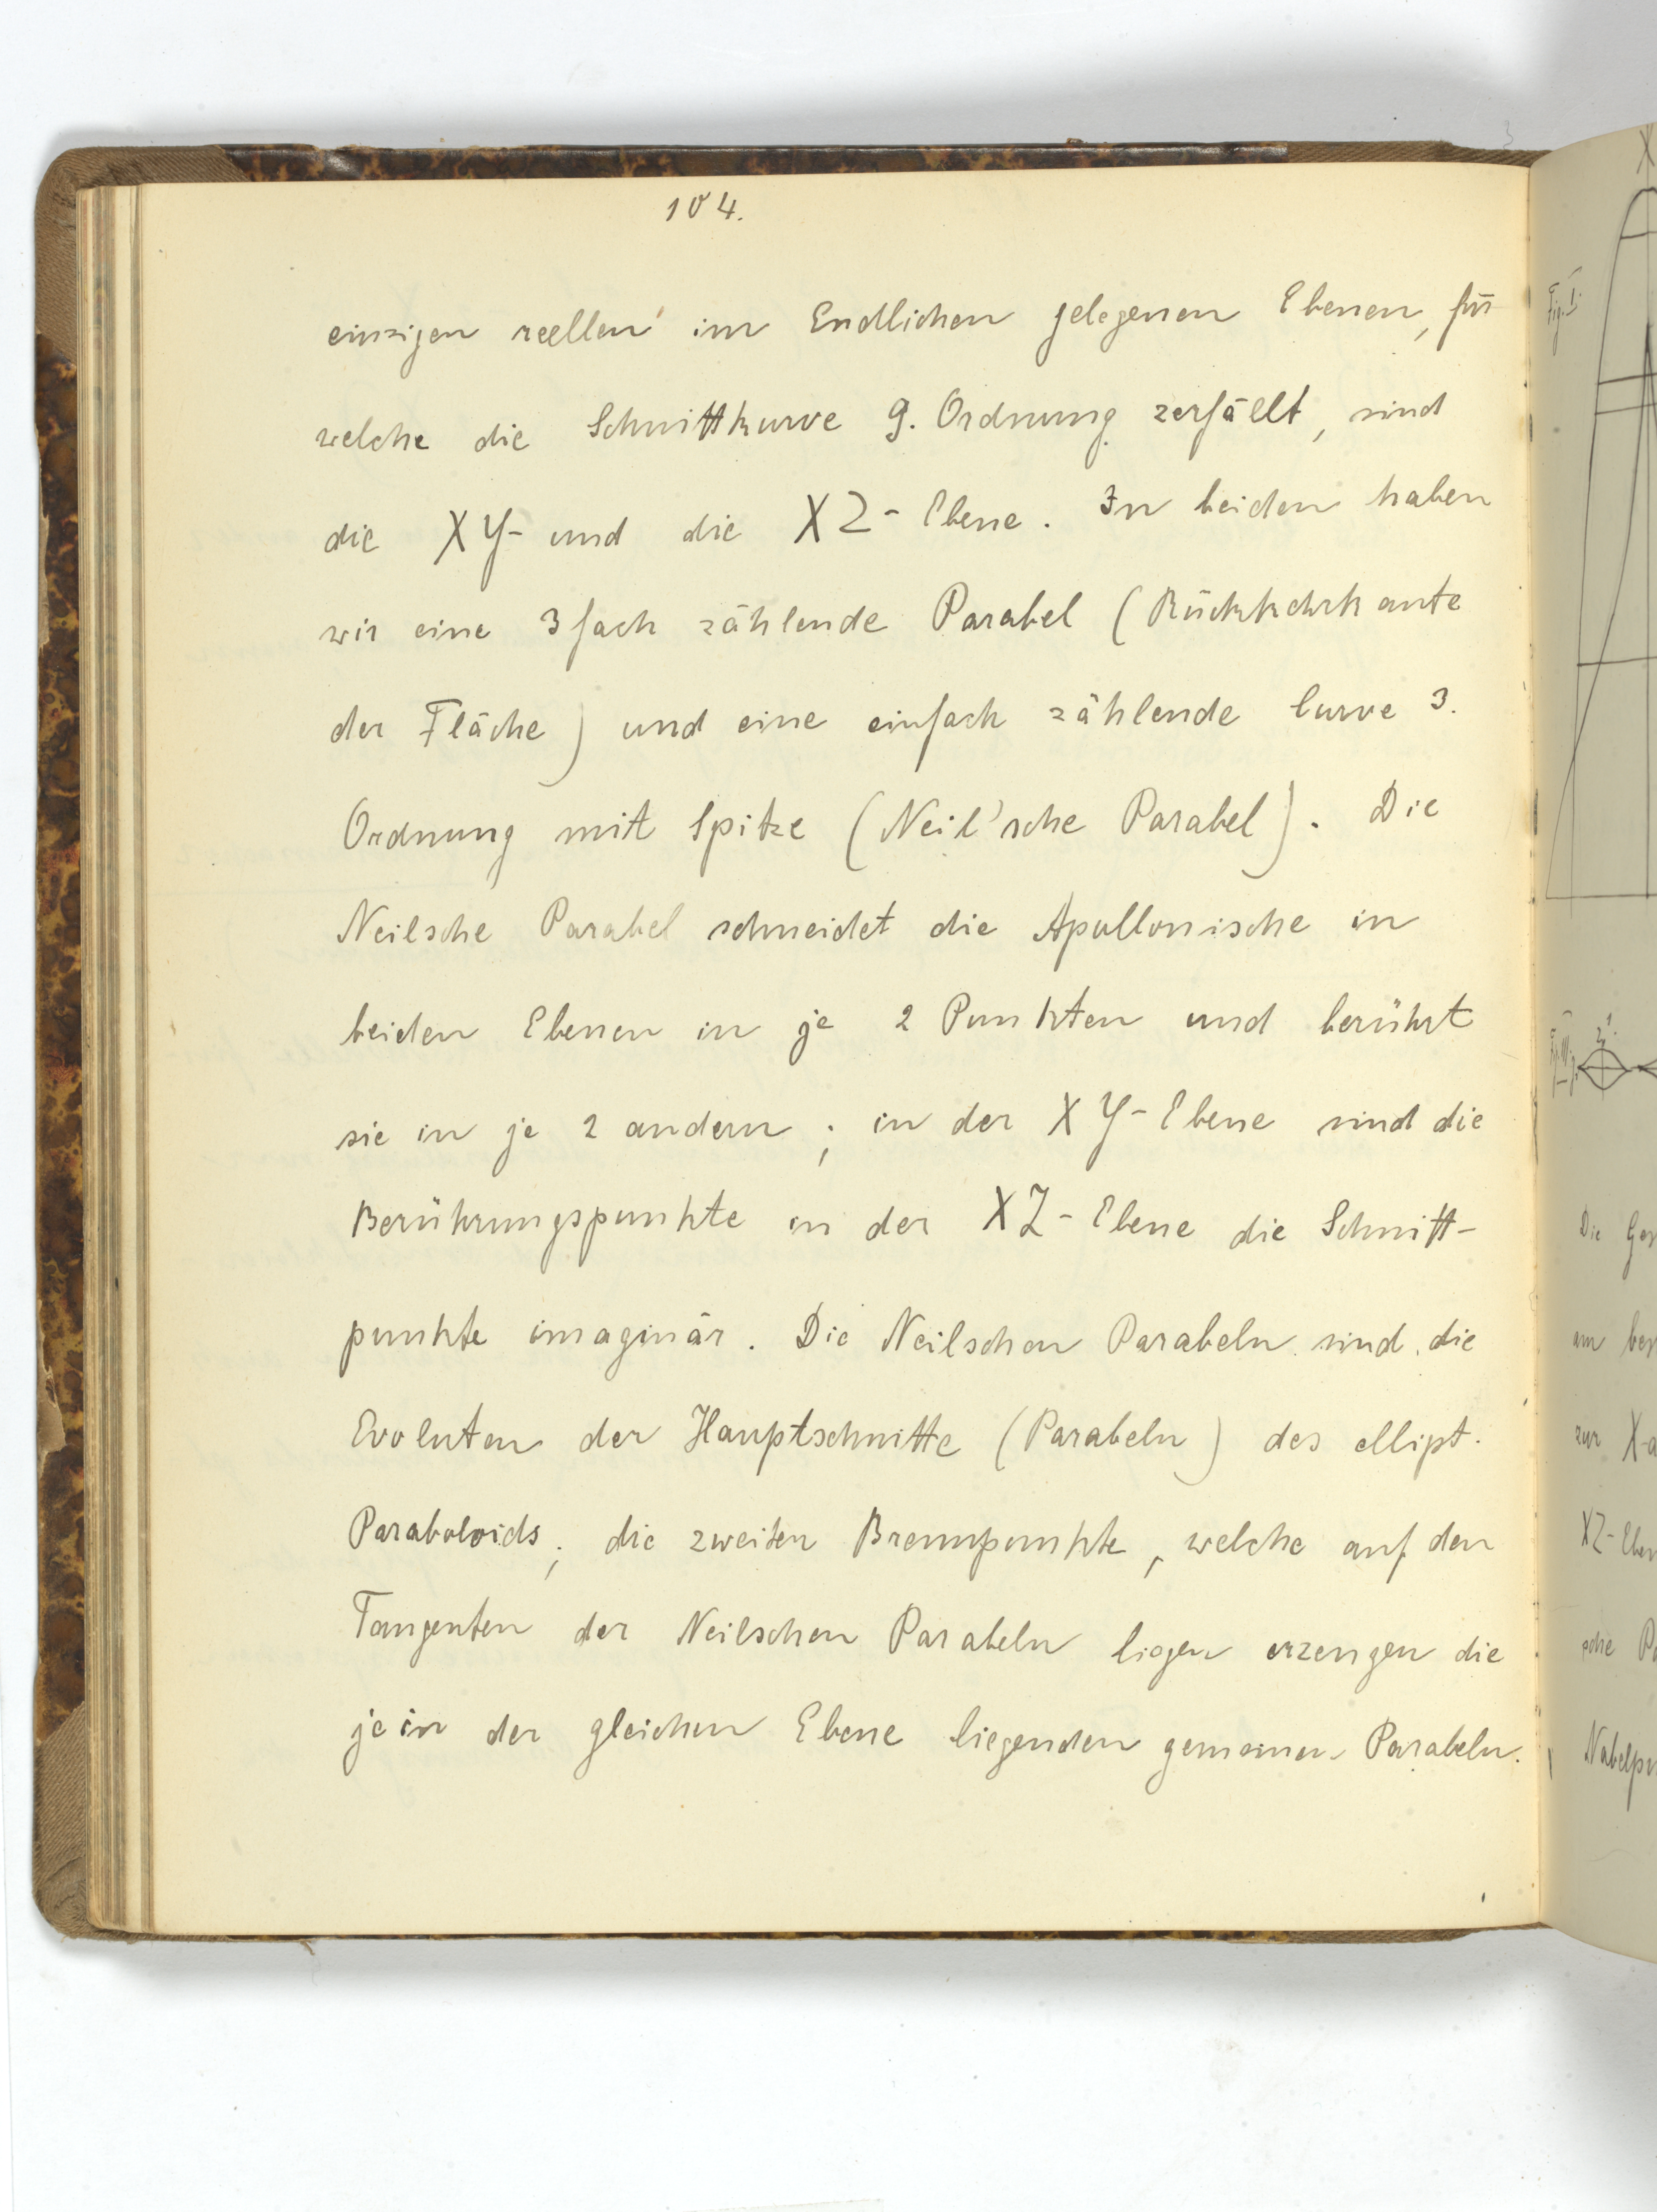 104.
einzigen reellen im Endlichen gelegenen Ebenen, für
welche die Schnittkurve 9. Ordnung zerfällt, sind
die XY- und die XZ-Ebene. In beiden haben
wir eine 3fach zählende Parabel (Rückkehrkante
der Fläche) und eine einfach zählende Curve 3.
Ordnung mit Spitze (Neil'sche Parabel). Die
Neilsche Parabel schneidet die Apollonische in
beiden Ebenen in je 2 Punkten und berührt
sie in je 2 andern; in der XY-Ebene sind die
Berührungspunkte in der XZ-Ebene die Schnitt-
punkte imaginär. Die Neilschen Parabeln sind die
Evoluten der Hauptschnitte (Parabeln) des ellipt.
Paraboloids; die zweiten Brennpunkte, welche auf den
Tangenten der Neilschen Parabeln liegen erzeugen die
je in der gleichen Ebene liegenden gemeinen Parabeln.
X
Fig. I.
Die
am
zur X-
XZ-Eben
sche
Nabelpu